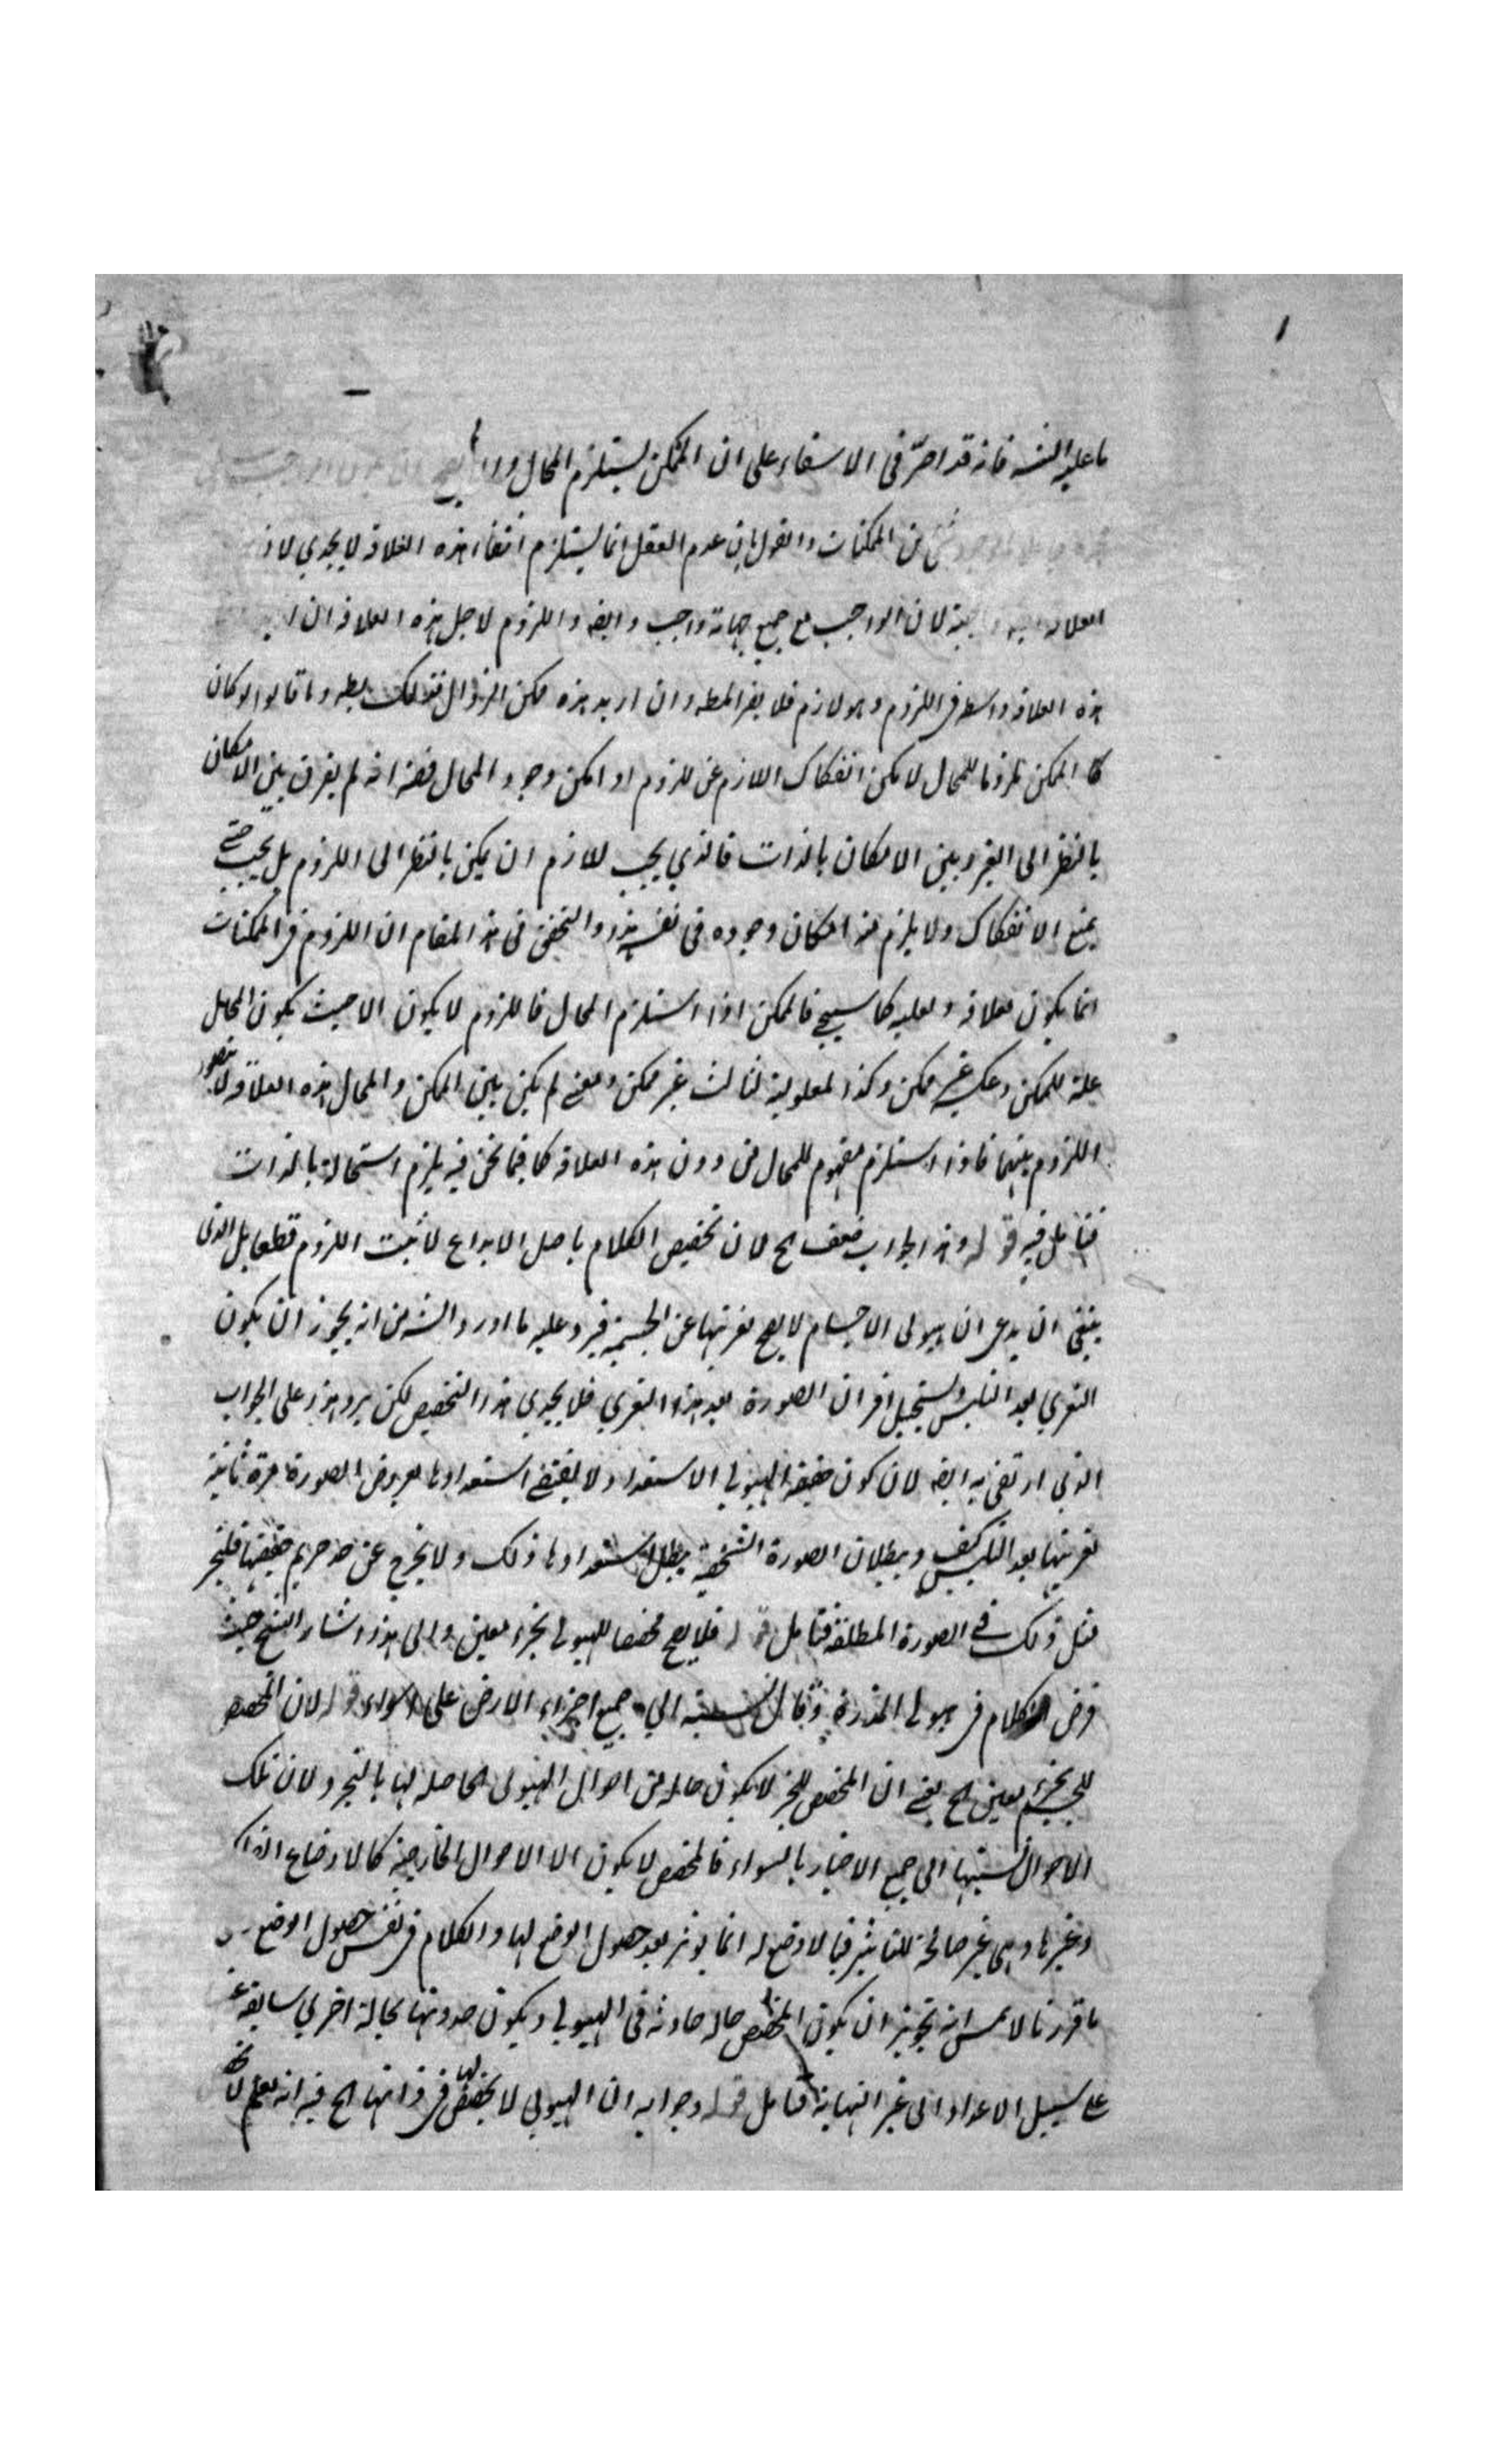 ما عليه الشه فانه قد اصر فى الاسفار على ان الممكن يستلزم المحال
من الممكنات والقول بان عدم العقل انما يستلزم انتفاء هذه العلاقة لا يجدي لان
العلاقة لان الواجب مع جميع جهاته واجب وايضه واللزوم لاجل هذه العلاقة ان
هذه العلاقة واسطه فى اللزوم وهو لازم فلا يضر المطه وان اريد هذه ممكن الزوال فذلك بطه وما قالوا لو كان
كا الممكن ملزوما للمحال لا مكن انفكاك اللازم عن ملزوم او امكن وجود المحال ففيه انه لم يفرق بين الامكان
بالنظر الى الغير وبين الامكان بالذات فالذي يجب للازم ان يمكن بالنظر الى اللزوم بل يجب حتى
يمتنع الانفكاك ولا يلزم منه امكان وجوده فى نفسه هذا والتحقيق فى هذا المقام ان اللزوم فى الممكنات
انما يكون بعلاقة و لعليه كما سيجي فالممكن اذا استلزم المحال فاللزوم لا يكون الا حيث يكون المحال
علة للممكن وعكسه غير ممكن وكذا المعلولية لثالث غير ممكن ومعنى لم يكن بين الممكن والمحال هذه العلاقة لا يتصور
اللزوم بينهما فاذا استلزم مفهوم للمحال من دون هذه العلاقة كما فيما نحن فيه يلزم استحالة بالذات
فتامل فيه قوله وهذا الجواب ضعف اح لان تخصيص الكلام باصل الابداع لا يثبت اللزوم قطعا بل الذى
ينبغى ان يدعى ان هيولى الاجسام لا يصح تعريتها عن الجسمية فيرد عليه ما اورد الشه من انه يجوز ان يكون
التعري بعد التلبس يستحيل اقتران الصورة بعد هذا التعري فلا يجدي هذا التخصيص لكن يرد هذا على الجواب
الذي ارتضى به ايضه لان كون حقيقة الهيولى الاستعداد لا يقتضى استعدادها بعروض الصورة مرة ثانية
تعريتها بعد التلبس كيف وببطلان الصورة الشخصية يبطل استعدادها ذلك ولا يخرج عن حد حريم حقيقتها فليجز
مثل ذلك فى الصورة المطلقة فتامل قوله فلا يصح مخصصا للهيولى بجزء معين والى هذا اشار الشيخ حيث
فرض الكلام فى هيولى المدرة وقال نسبته الى جميع اجزاء الارض على السواء قوله لان المخصص
للجسم بجزء معين اح يعنى ان المخصص للجز لا يكون حاله من احوال الهيولى الحاصله لها بالتجرد لان تلك
الاحوال نسبتها الى جميع الاحياز بالسواء فالمخصص لا يكون الا الاحوال الخارجية كالاوضاع
وغيرها وهى غير صالحة للتاثير فيما لا وضع له انما يوثر بعد حصول الوضع لها والكلام فى نفس حصول الوضع
ما قررنا لا يمس انه تجويز ان يكون المخصص حاله حادثه فى الهيولى ويكون حدوثها بحالة اخرى سابقة
على سبيل الاعداد الى غير النهاية فتامل قوله وجوابه ان الهيولى لا تخصص لها فى ذاتها اح فيه انه